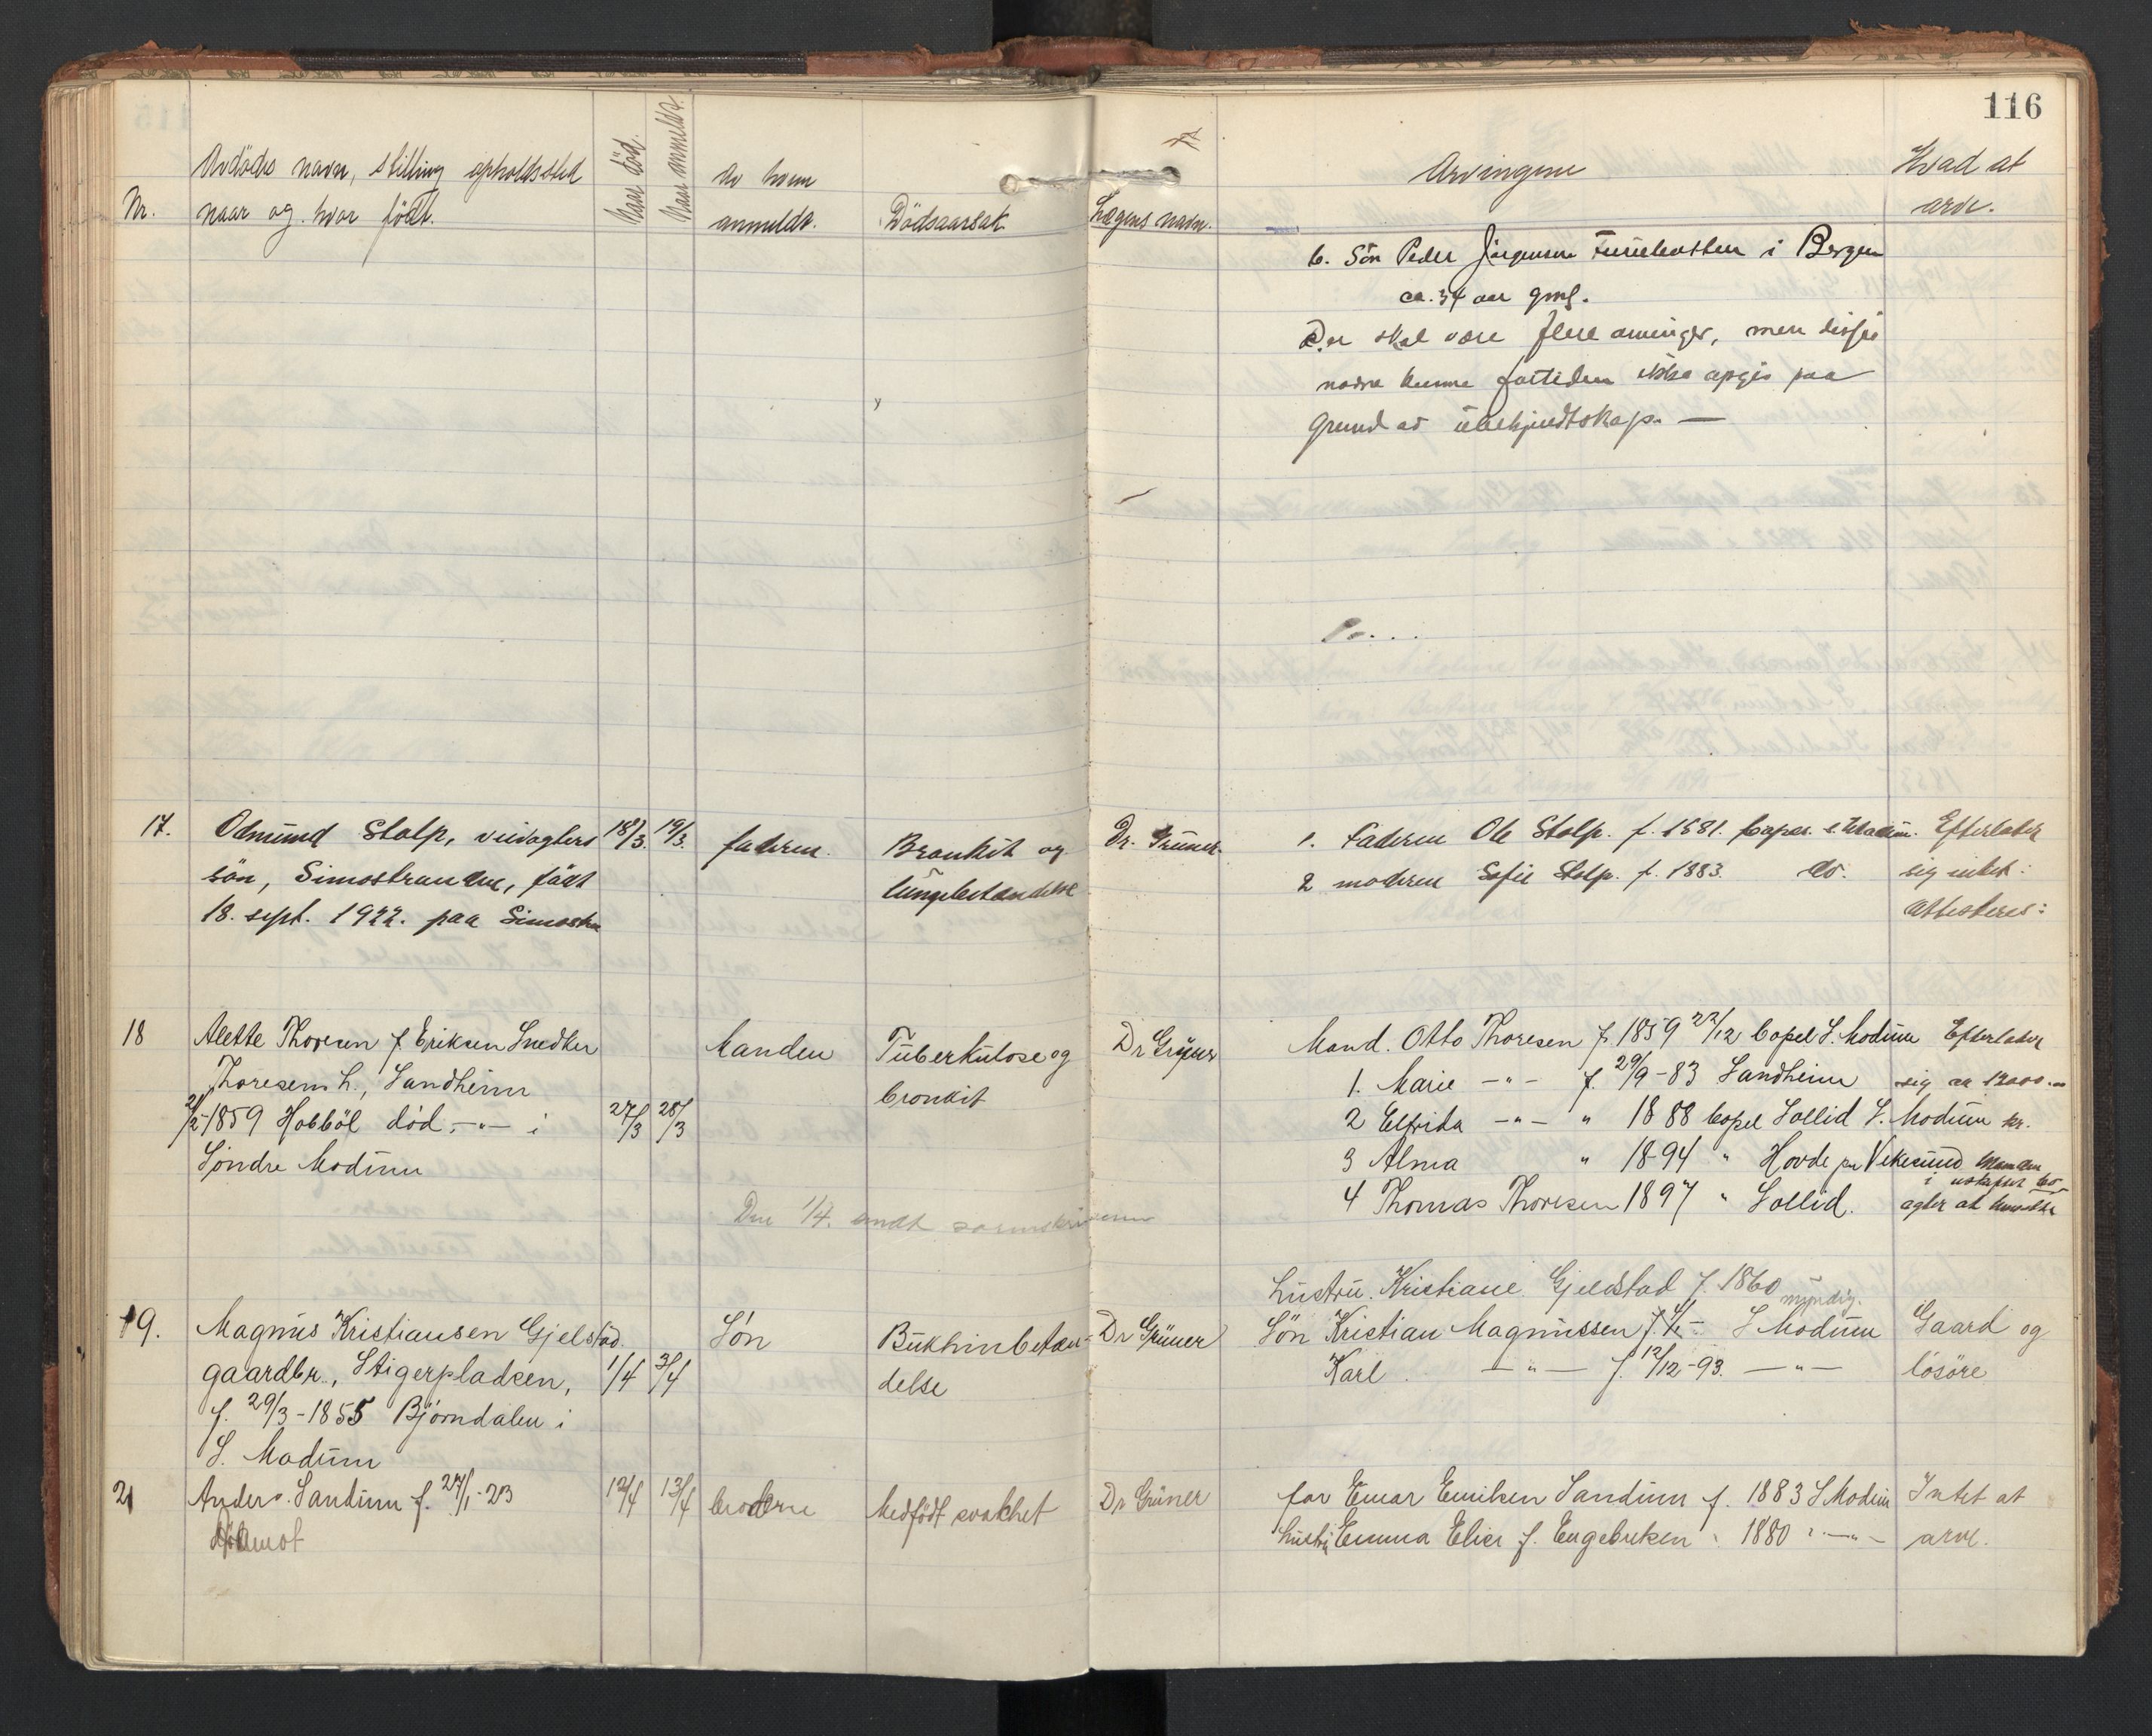 116
Nr.
Avdödes navn, stilling opholdssted
naar og hvor född.
Naar död.
Naar anmeldt.
Av hvem
anmeldt.
Dödsaarsak
Lægens navn.
Arvingene
Hvad at
arve.
6. Sön Peder Jörgensen i Bergen
ca. 34 aar gml.
Der skal være flere arvinger, men disses
navne kunne fortiden ikke opgis paa
grund av ubekjendtskap. —
17. Odmund Stolp, veivogters
sön, Simostranden, född
18. sept. 1922. paa Simostr
18/3. 19/3.
faderen.
Bronkit og
lungebetændelse
Dr. Grüner.
1. Faderen Ole Stolp. f. 1881.
2 moderen Sofie Stolp. f. 1883. do.
Efterlater
sig intet.
Attesteres:
18 Alette Thoresen f. Eriksen Snedker
Thoresens h., Sandheim
1859 Hobböl död -"- i
Söndre Modum
27/3 28/3
Manden
Tuberkulose og
bronkit
Dr Grüner
Mand. Otto Thoresen f. 1859 22/12 bopel S. Modum
1. Marie -"- f. 29/9-83 Sandheim
2 Elfrida -"- " 1888 bopel Sollid S. Modum
3 Alma " 1894 " Hovde pr Vikesund
4 Thomas Thoresen 1897 " Sollid.
Efterlater
sig ca 12000.-
kr.
Manden
i uskiftet bo
agter at hensitte
Den 1/4. sendt sorenskriveren
19. Magnus Kristiansen Gjelstad.
gaardbr., Stigerpladsen,
f. 29/3-1855 Björndalen i
S. Modum
1/4 3/4
Sön
Bukhinbetæn-
delse
Dr Grüner
Hustru. Kristiane Gjelstad f. 1860
myndig.
Sön Kristian Magnussen f. S Modum
Karl -"- f. 12/12-93. -"-
Gaard og
lösöre
21 Anders Sandum f. 27/1-23
Åmot
12/4 13/4
Medfödt svakhet
Dr Grüner
far Einar Emilsen Sandum f. 1883 S Modum
hustru Emma Elise f. Engebretsen " 1880 " -"-
Intet at
arve.